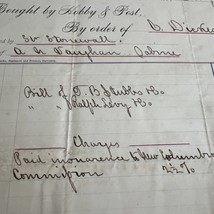 Bought by Hobby & Post.
By order of C. Dicke
by Str Stonewall,
A N Vaughan
Bill of J. B. Stubbs & Co.
" " Joseph Levy & Co.
Charges
Paid insurance to New Columbus
Commission 2½%